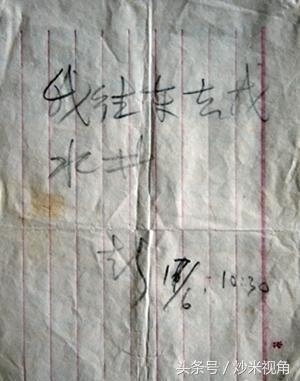 我往东去找
水井
彭 17/6:10:30
头条号／炒米视角